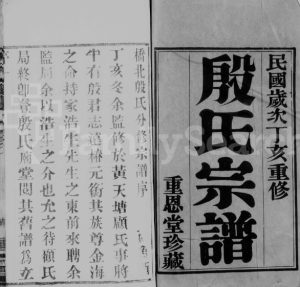 民國歲次丁亥重修
殷氏宗譜
重恩堂珍藏
橋北殷氏分修宗譜序
丁亥冬余監修於黃天塘顧氏事將
半有殷君志道椿元銜其族尊金海
之命持家浩生先生之柬前來聘余
監局余以浩生之介也允之待顧氏
局終卽登殷氏廟堂閱其舊譜爲立